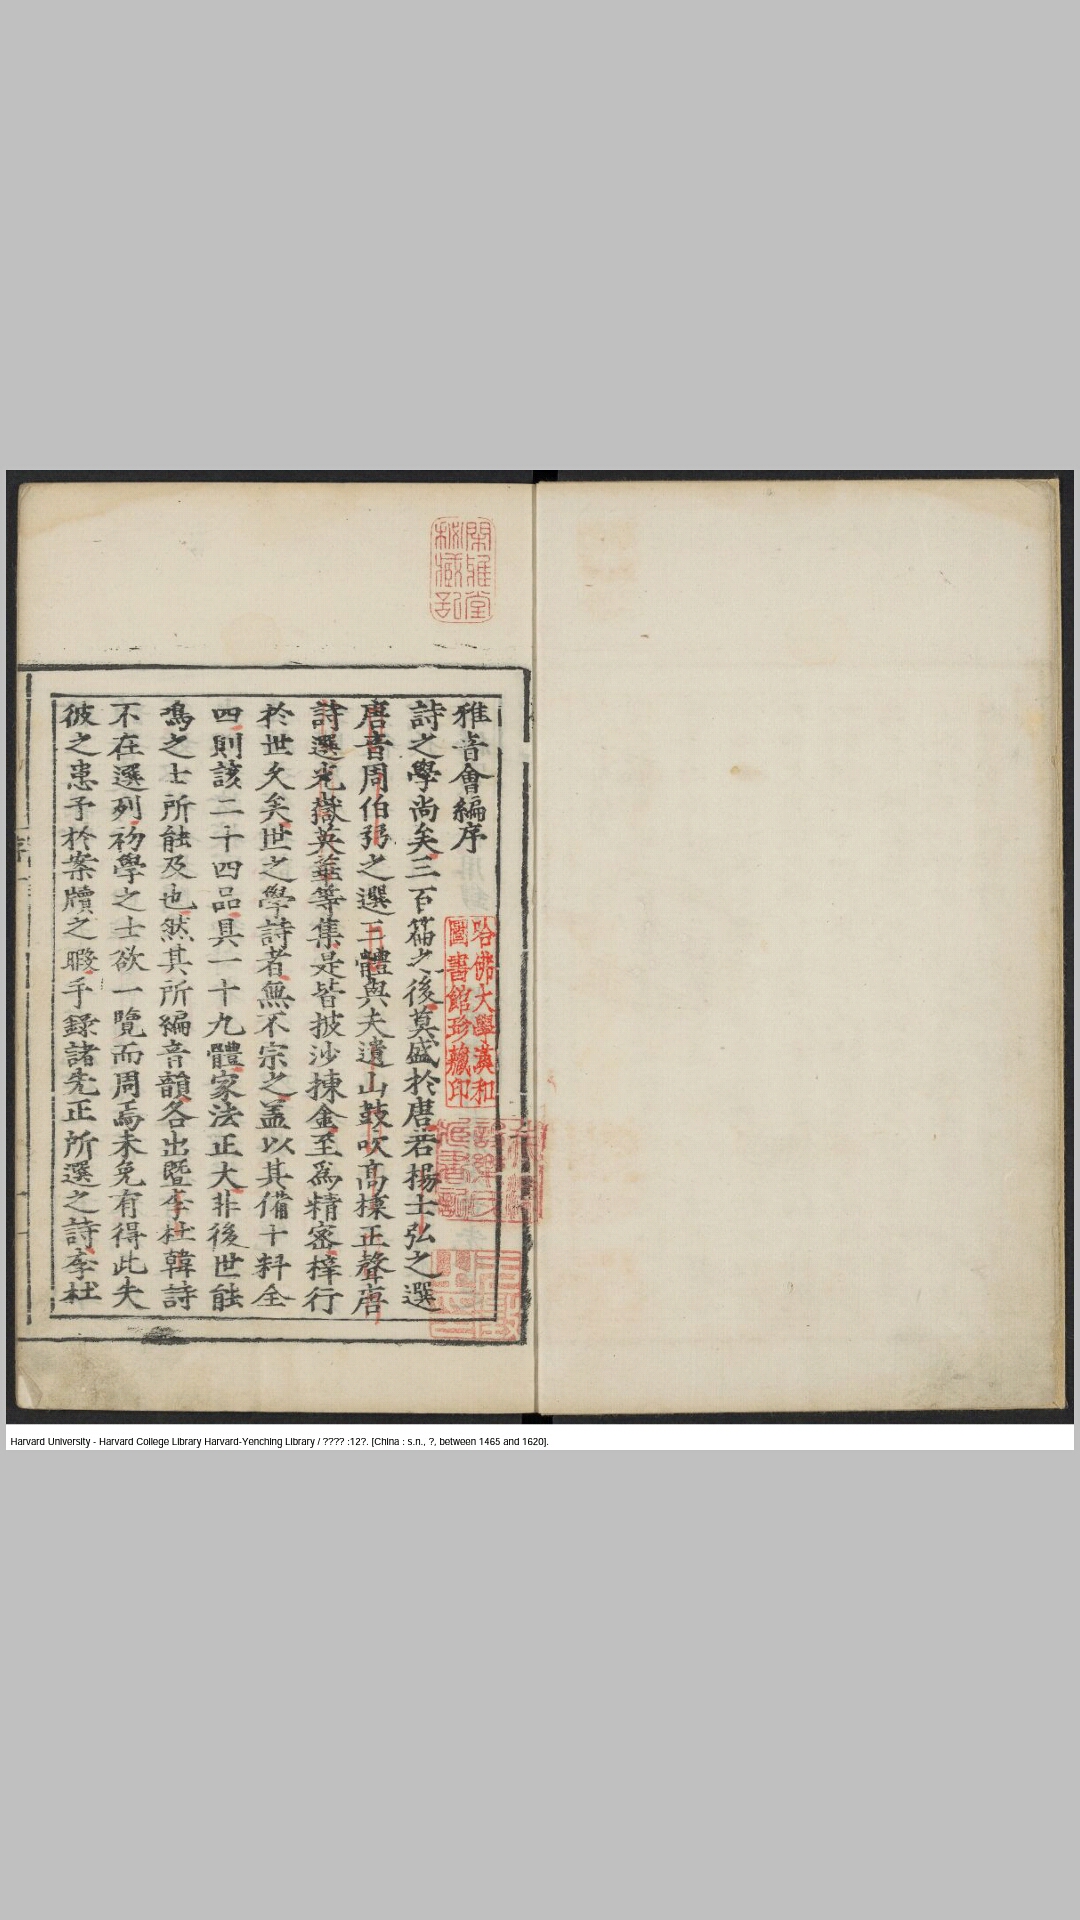 雅音會編序
詩之學尚矣三百篇之後莫盛於唐若楊士弘之選
唐音周伯弜之選三體與夫遺山鼓吹高棅正聲唐
詩選光嶽英華等集是皆披沙揀金至為精密梓行
於世久矣世之學詩者無不宗之盖以其備十科全
四則該二十四品具一十九體家法正大非後世能
鳴之士所能及也然其所編音韻各出暨李杜韓詩
不在選列初學之士欲一覽而周焉未免有得此失
彼之患予於案牘之暇手錄諸先正所選之詩李杜
閑雅堂
秘藏記
哈佛大學漢和
圖書館珍藏印
序
Harvard University - Harvard College Library Harvard-Yenching Library / ???? :12?. [China : s.n., ?, between 1465 and 1620].